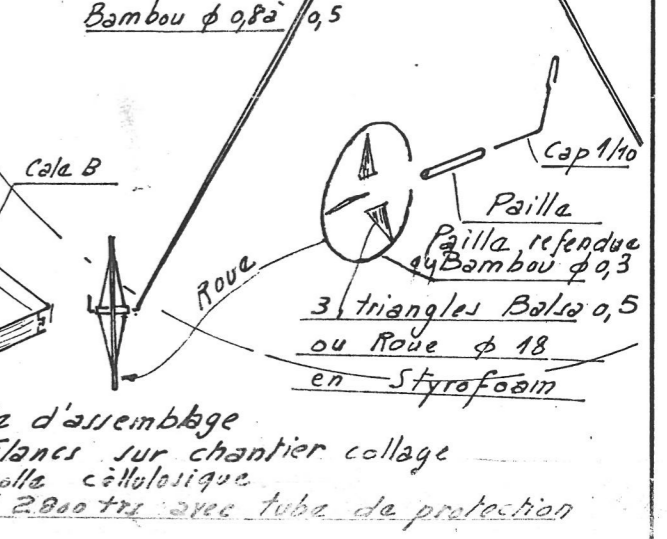 Bambou ϕ 0,8à 0,5
Cale B
Cap 1/10
Paille
Paille refendue
ou Bambou ϕ 0,3
Roue
3 triangles Balsa 0,5
ou Roue ϕ 18
en Styrofoam
d'assemblage
flancs sur chantier collage
cellulosique
2800 trs avec tube de protection